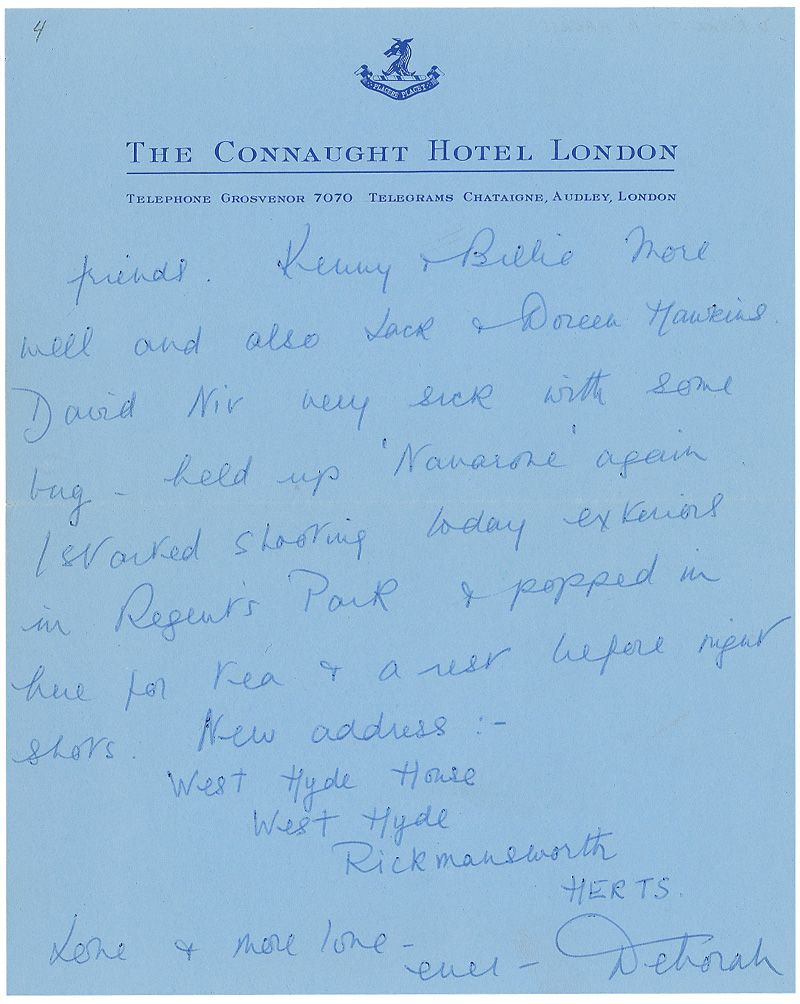 4
PLACERE PLACET
THE CONNAUGHT HOTEL LONDON
TELEPHONE GROSVENOR 7070 TELEGRAMS CHATAIGNE, AUDLEY, LONDON
friends. Kenny & Billie More
well and also Jack & Doreen Hawkins.
David Niv very sick with some
bug - held up 'Navarone' again
I started shooting today exteriors
in Regent's Park & popped in
here for tea & a rest before night
shots. New address :-
West Hyde House
West Hyde
Rickmansworth
HERTS.
Love & more love -
ever - Deborah